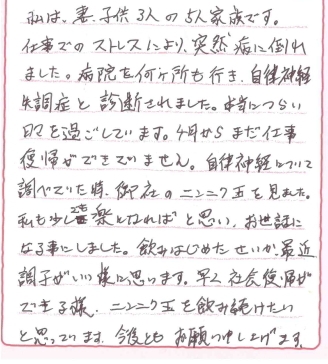 私は、妻、子供3人の5人家族です。
仕事でのストレスにより、突然病に倒れ
ました。病院を何ヶ所も行き、自律神経
失調症と診断されました。本当につらい
日々を過ごしています。4月からまだ仕事
復帰ができていません。自律神経について
調べていた時、御社のニンニク玉を見ました。
私も少しでも楽となればと思い、お世話に
なる事にしました。飲みはじめたせいか、最近
調子がいい様に思います。早く社会復帰が
できる様、ニンニク玉を飲み続けたい
と思っています。今後とも お願い申し上げます。